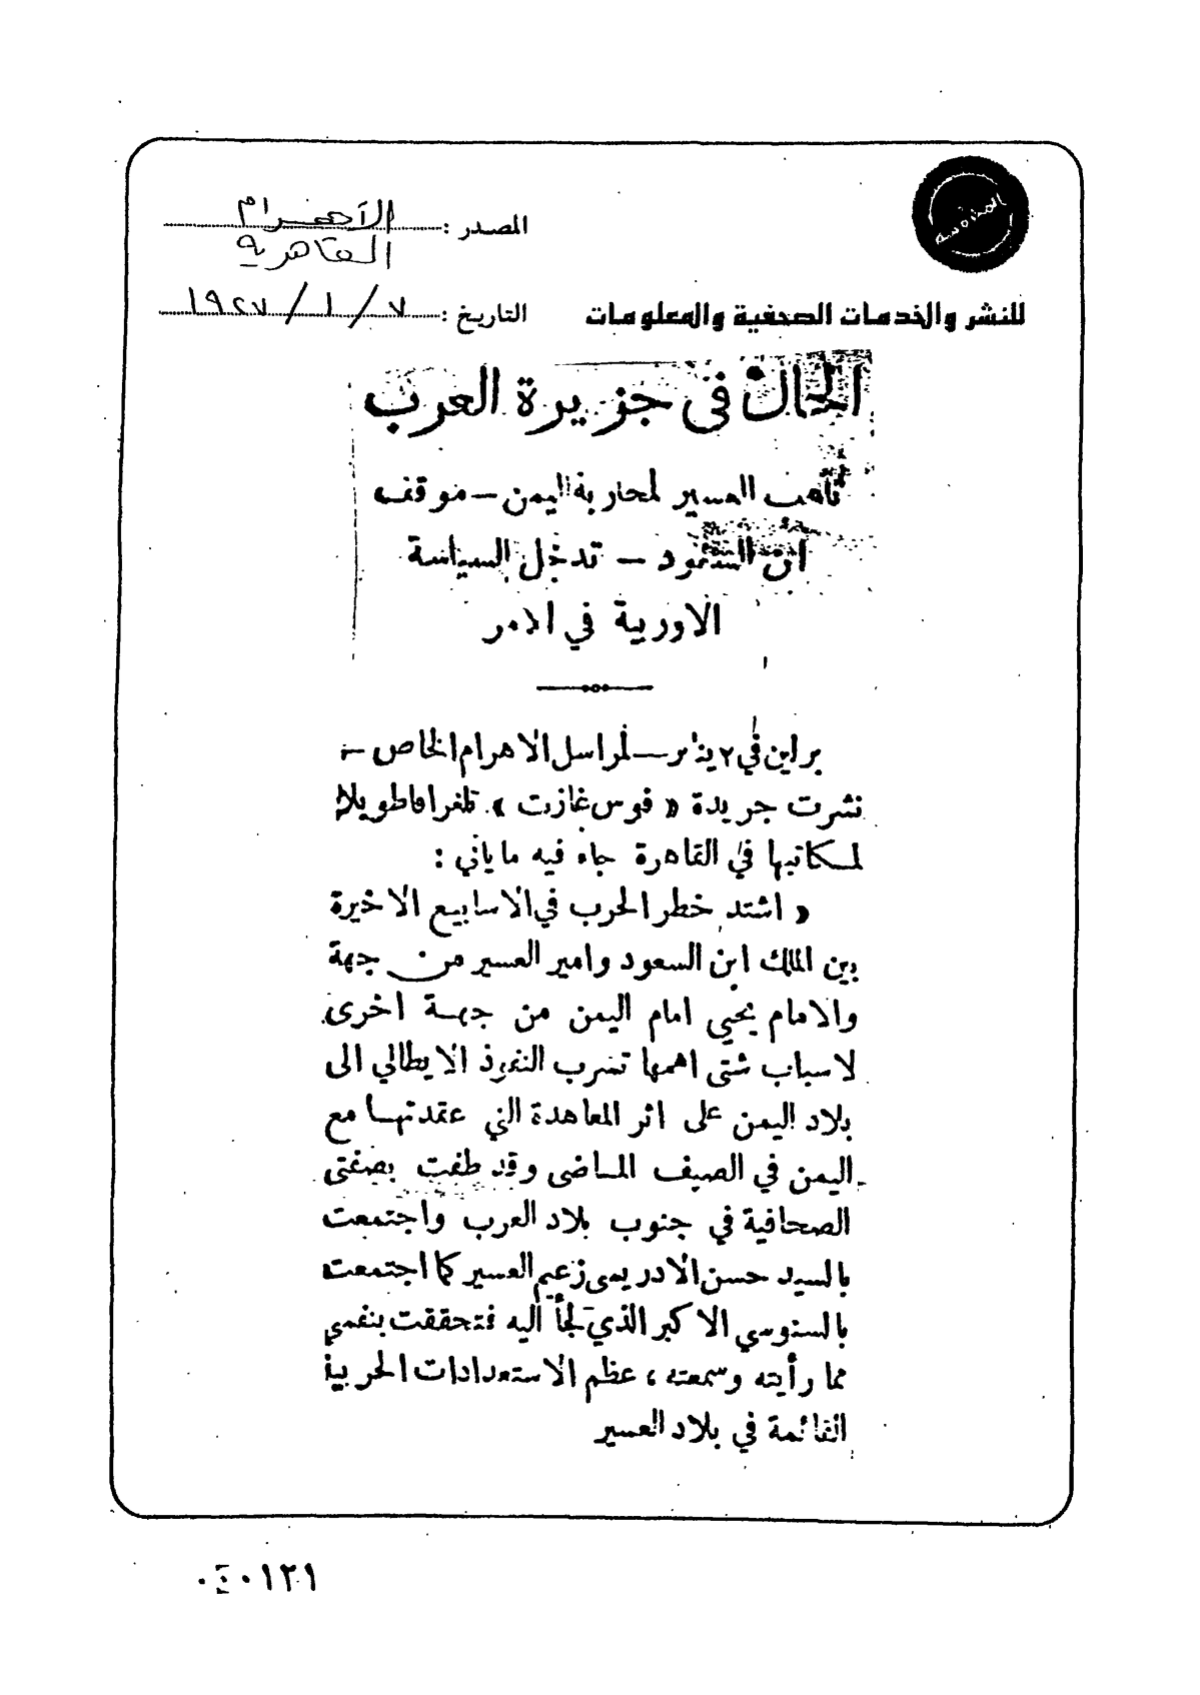 المصدر : الأهرام
القاهرية
للنشر والخدمات الصحفية والمعلومات
التاريخ : ٧ / ١ / ١٩٢٧
الحال في جزيرة العرب
تأهب العسير لمحاربة اليمن — موقف
ابن السعود — تدخل السياسة
الاوربية في الامر
برلين في ٢ يناير — لمراسل الاهرام الخاص —
نشرت جريدة « فوس غازت » تلغرافا طويلا
لمكاتبها في القاهرة جاء فيه ما يأتي :
« اشتد خطر الحرب في الاسابيع الاخيرة
بين الملك ابن السعود وامير العسير من جهة
والامام يحيى امام اليمن من جهة اخرى
لاسباب شتى اهمها تسرب النفوذ الايطالي الى
بلاد اليمن على اثر المعاهدة التي عقدتها مع
اليمن في الصيف الماضى وقد طفت بصفتى
الصحافية في جنوب بلاد العرب واجتمعت
بالسيد حسن الادريسى زعيم العسير كما اجتمعت
بالسنوسي الاكبر الذي لجأ اليه فتحققت بنفسي
مما رأيته وسمعته ، عظم الاستعدادات الحربية
القائمة في بلاد العسير